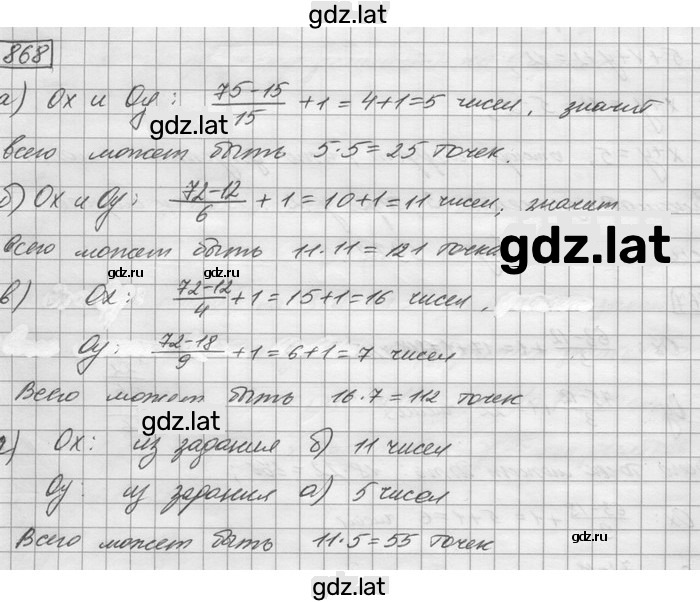 gdz.lat
868
а) Ox и Oy: (75-15)/15 + 1 = 4+1=5 чисел, значит
gdz.lat
всего может быть 5·5=25 точек.
б) Ox и Oy: (72-12)/6 + 1 = 10+1=11 чисел; значит
всего может быть 11·11=121 точка
gdz.lat
gdz.ru gdz.ru
в) Ox: (72-12)/4 + 1 = 15+1=16 чисел,
Oy: (72-18)/9 + 1 = 6+1=7 чисел
Всего может быть 16·7=112 точек
gdz.lat
г) Ox: из задания б) 11 чисел
Oy: из задания а) 5 чисел
Всего может быть 11·5=55 точек
gdz.ru gdz.ru
gdz.lat